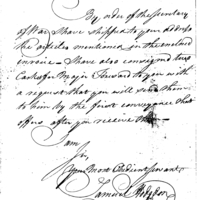 By order of the Secretary
of War I have shipped to your address
the articles mentioned in the enclosed
invoice I have also consigned two
Casks for Major Steward to you with
a request that you will send them
to him by the first conveyance that
offers, after you receive them
I am
Sir,
Your Most Obedient servant,
Samuel Hodgdon